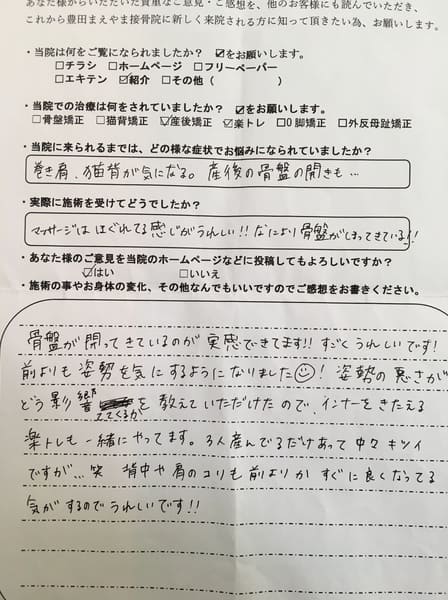 あなた様からいただいた貴重なご意見・ご感想を、他のお客様にも読んでいただき、
これから豊田まえやま接骨院に新しく来院される方に知って頂きたい為、お願いします。
・当院は何をご覧になられましたか？ ☑をお願いします。
□チラシ □ホームページ □フリーペーパー
□エキテン ☑紹介 □その他（ ）
・当院での治療は何をされていましたか？ ☑をお願いします。
□骨盤矯正 □猫背矯正 ☑産後矯正 ☑楽トレ □O脚矯正 □外反母趾矯正
・当院に来られるまでは、どの様な症状でお悩みになられていましたか？
巻き肩、猫背が気になる。産後の骨盤の開きも…
・実際に施術を受けてどうでしたか？
マッサージは ほぐれてる感じがうれしい!! なにより骨盤がしまってきている!!
・あなた様のご意見を当院のホームページなどに投稿してもよろしいですか？
☑はい □いいえ
・施術の事やお身体の変化、その他なんでもいいですのでご感想をお書きください。
骨盤が閉ってきているのが実感できてます!! すごくうれしいです!
前よりも姿勢を気にするようになりました☺! 姿勢の悪さが
どう影響 でてくるかを教えていただけたので、インナーをきたえる
楽トレも一緒にやってます。3人産んでるだけあって中々キツイ
ですが…笑 背中や肩のコリも前よりか すぐに良くなってる
気がするのでうれしいです!!